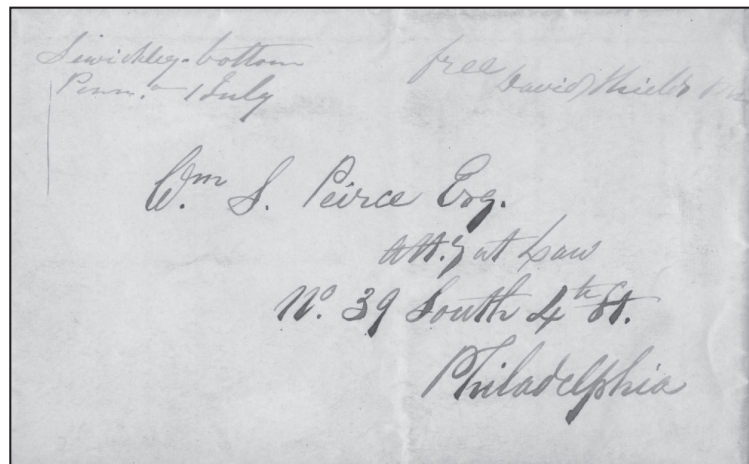 Sewickley-bottom
Penn.a 1 July
free David Shields PM
Wm S. Peirce Esq.
Att.y at Law
No. 39 South 4th St.
Philadelphia